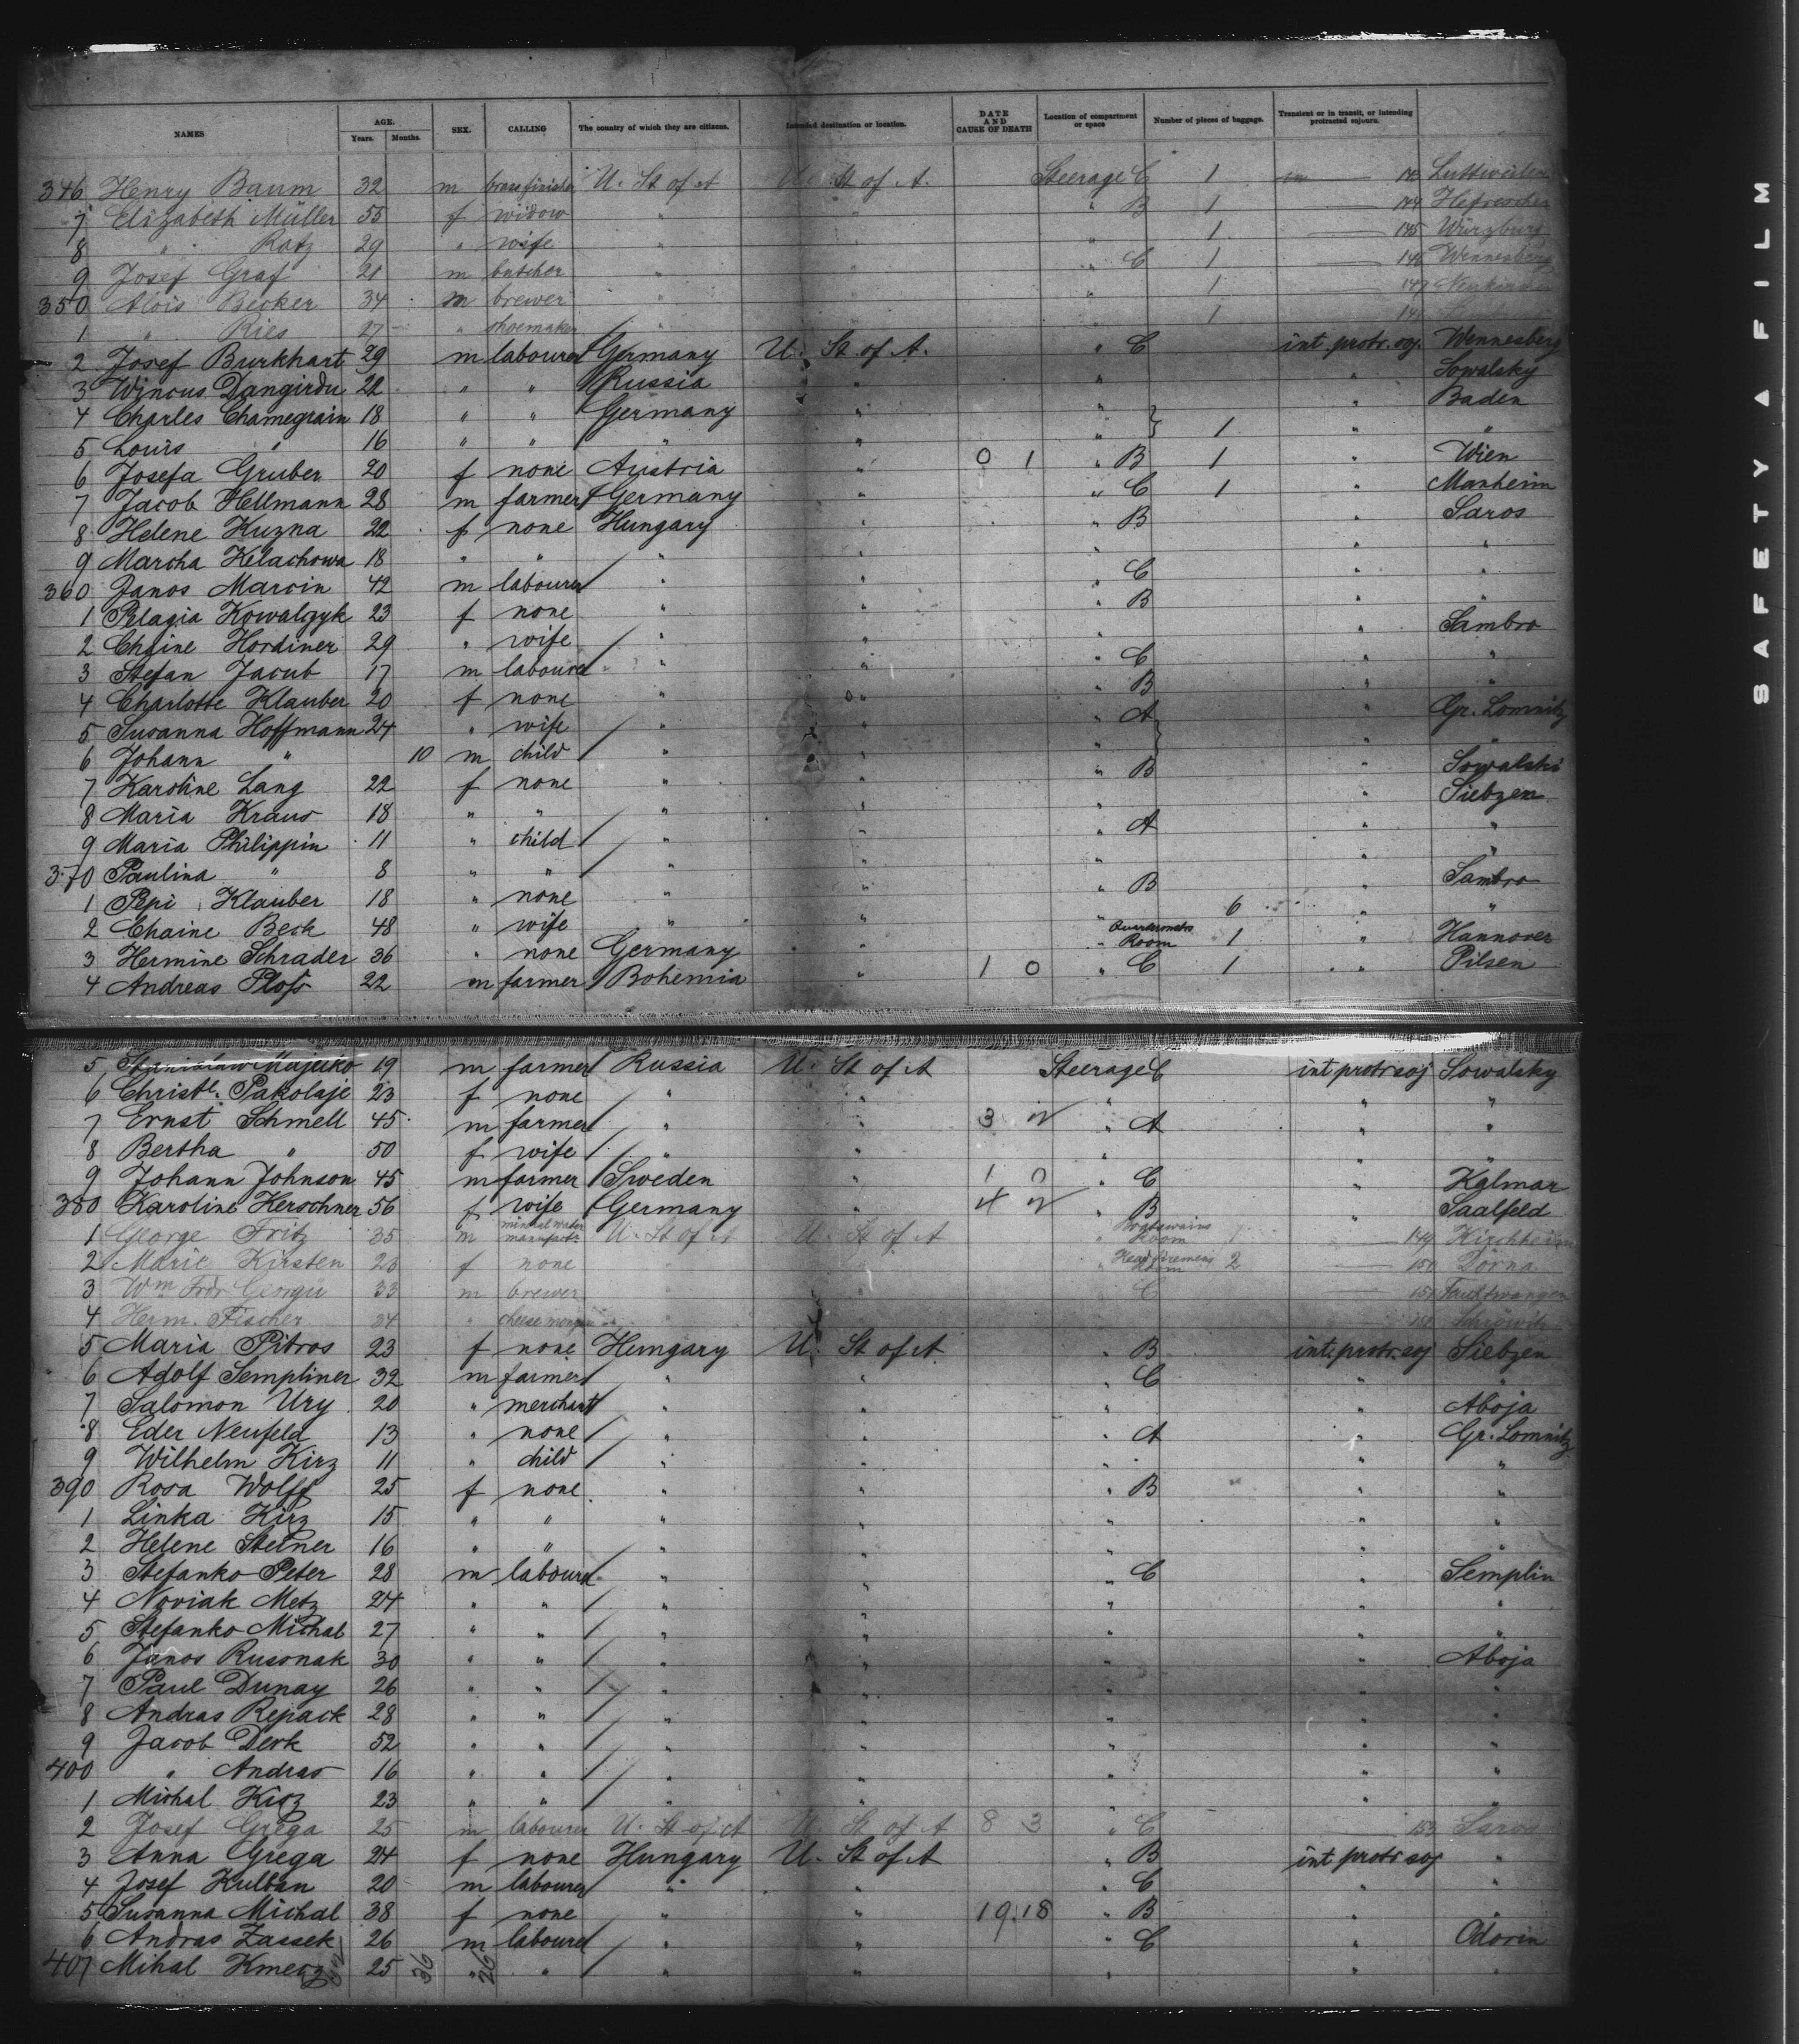 NAMES AGE. Years. Months. SEX. CALLING The country of which they are citizens. Intended destination or location. DATE AND CAUSE OF DEATH Location of compartment or space Number of pieces of baggage. Transient or in transit, or intending protracted sojourn.
346 Henry Baum 32 m brass finisher U. St of A U. St of A. Steerage C 1 143
7 Elizabeth Müller 55 f widow " " " B 1 144
8 " Ratz 29 " wife " " " 1 145 Würzburg
9 Josef Graf 21 m butcher " " " C 1 146 Wennesberg
350 Alois Becker 34 m brewer " " 1 147
1 " Ries 27 " shoemaker " 1
2 Josef Burkhart 29 m labourer Germany U. St of A. " C int protr. soj. Wennesberg
3 Wincus Dangirdu 22 " " Russia " " " Sowalsky
4 Charles Chamegrain 18 " " Germany " " " Baden
5 Louis " 16 " " " " " } 1 " "
6 Josefa Gruber 20 f none Austria " 0 1 " B 1 " Wien
7 Jacob Hellmann 28 m farmer Germany " " C 1 " Manheim
8 Helene Kuzna 22 f none Hungary " " B " Saros
9 Marcha Kelachowa 18 " " " " " " "
360 Janos Marcin 42 m labourer " " " C " "
1 Pelagia Kowalczyk 23 f none " " " B " "
2 Chaine Hordiner 29 " wife " " " Sambro
3 Stefan Jacub 17 m labourer " " " C " "
4 Charlotte Klauber 20 f none " " " B " "
5 Susanna Hoffmann 24 " wife " " " A " Gr. Lomnitz
6 Johann " 10 m child " " " " "
7 Karoline Lang 22 f none " " " B " Sowalski
8 Maria Kraus 18 " " " " " " Siebzen
9 Maria Philippin 11 " child " " " A " "
370 Paulina " 8 " " " " " " "
1 Pepi Klauber 18 " none " " " B " Sambro
2 Chaine Beck 48 " wife " " " 6 " "
3 Hermine Schrader 36 " none Germany " " Room 1 " Hannover
4 Andreas Ploß 22 m farmer Bohemia " 1 0 " C 1 " Pilsen
5 19 m farmer Russia U. St of A Steerage C int protr soj Sowalsky
6 Christl. Pakolaje 23 f none " " " " "
7 Ernst Schmell 45 m farmer " " 3 " A " "
8 Bertha " 50 f wife " " " "
9 Johann Johnson 45 m farmer Sweden " 1 0 " C " Kalmar
380 Karoline Herschner 56 f wife Germany " 4 " B " Saalfeld
1 George Fritz 35 m mineral water U. St of A U. St of A " Room 149
2 Marie Kirsten 23 f none " " Head firemens Room 2 150 Dorna
3 Wm Frdr Georgii 33 m brewer C 151 Feuchtwangen
4 Herm. Fischer 34 " 152
5 Maria Pitros 23 f none Hungary U. St of A " B int. protr. soj Siebzen
6 Adolf Sempliner 32 m farmer " " " C " "
7 Salomon Ury 20 " merchant " " " " Aboja
8 Eder Neufeld 13 " none " " " A " Gr. Lomnitz
9 Wilhelm Kirz 11 " child " " " " "
390 Rosa Wolff 25 f none " " " B " "
1 Linka Kirz 15 " " " " " " "
2 Helene Steiner 16 " " " " " " "
3 Stefanko Peter 28 m labourer " " " C " Semplin
4 Noviak Metz 24 " " " " " " "
5 Stefanko Michal 27 " " " " " " "
6 Janos Russnak 30 " " " " " " Aboja
7 Paul Dunay 26 " " " " " " "
8 Andras Repack 28 " " " " " " "
9 Jacob Derk 52 " " " " " " "
400 " Andras 16 " " " " " " "
1 Michal Kirz 23 " " " " " " "
2 Josef Grega 25 m labourer U. St of A U. St of A 8 3 " C 153 Saros
3 Anna Grega 24 f none Hungary U. St of A " B int protr soj "
4 Josef Kulban 20 m labourer " " " C " "
5 Susanna Michal 38 f none " " 19.18 " B " "
6 Andras Zassek 26 m labourer " " " C " Odorin
407 Mihal Kmetz 25 " " " " " " "
36 26
SAFETY A FILM